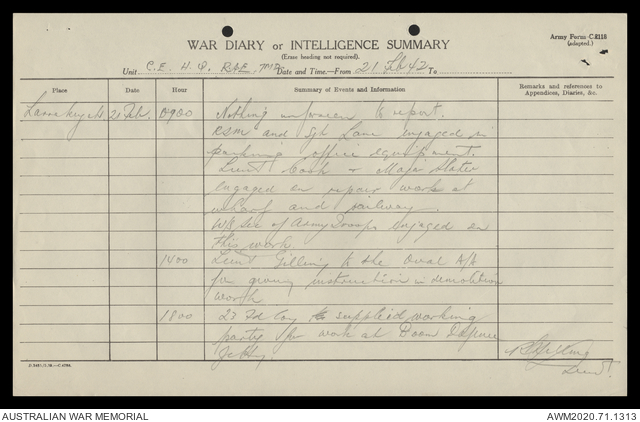 Army Form C.2118
(adapted.)
WAR DIARY or INTELLIGENCE SUMMARY
(Erase heading not required).
Unit C.E. H.Q. RAE, Date and Time.—From 21 Feb 42 To
Place Date Hour Summary of Events and Information Remarks and references to Appendices, Diaries, &c.
21 Feb. 0900 Nothing to report.
RSM and Sgt Lane engaged in
packing office equipment.
Lieut Cook & Major Slater
engaged on repair work at
wharf and railway.
Sec of Army Troops engaged on
this work.
1400 Lieut Gilling to the Oval
for giving instruction in demolition
work
1800 23 Fd Coy supplied working
party for work at Boom Defence
Jetty.
Lieut.
AUSTRALIAN WAR MEMORIAL
AWM2020.71.1313